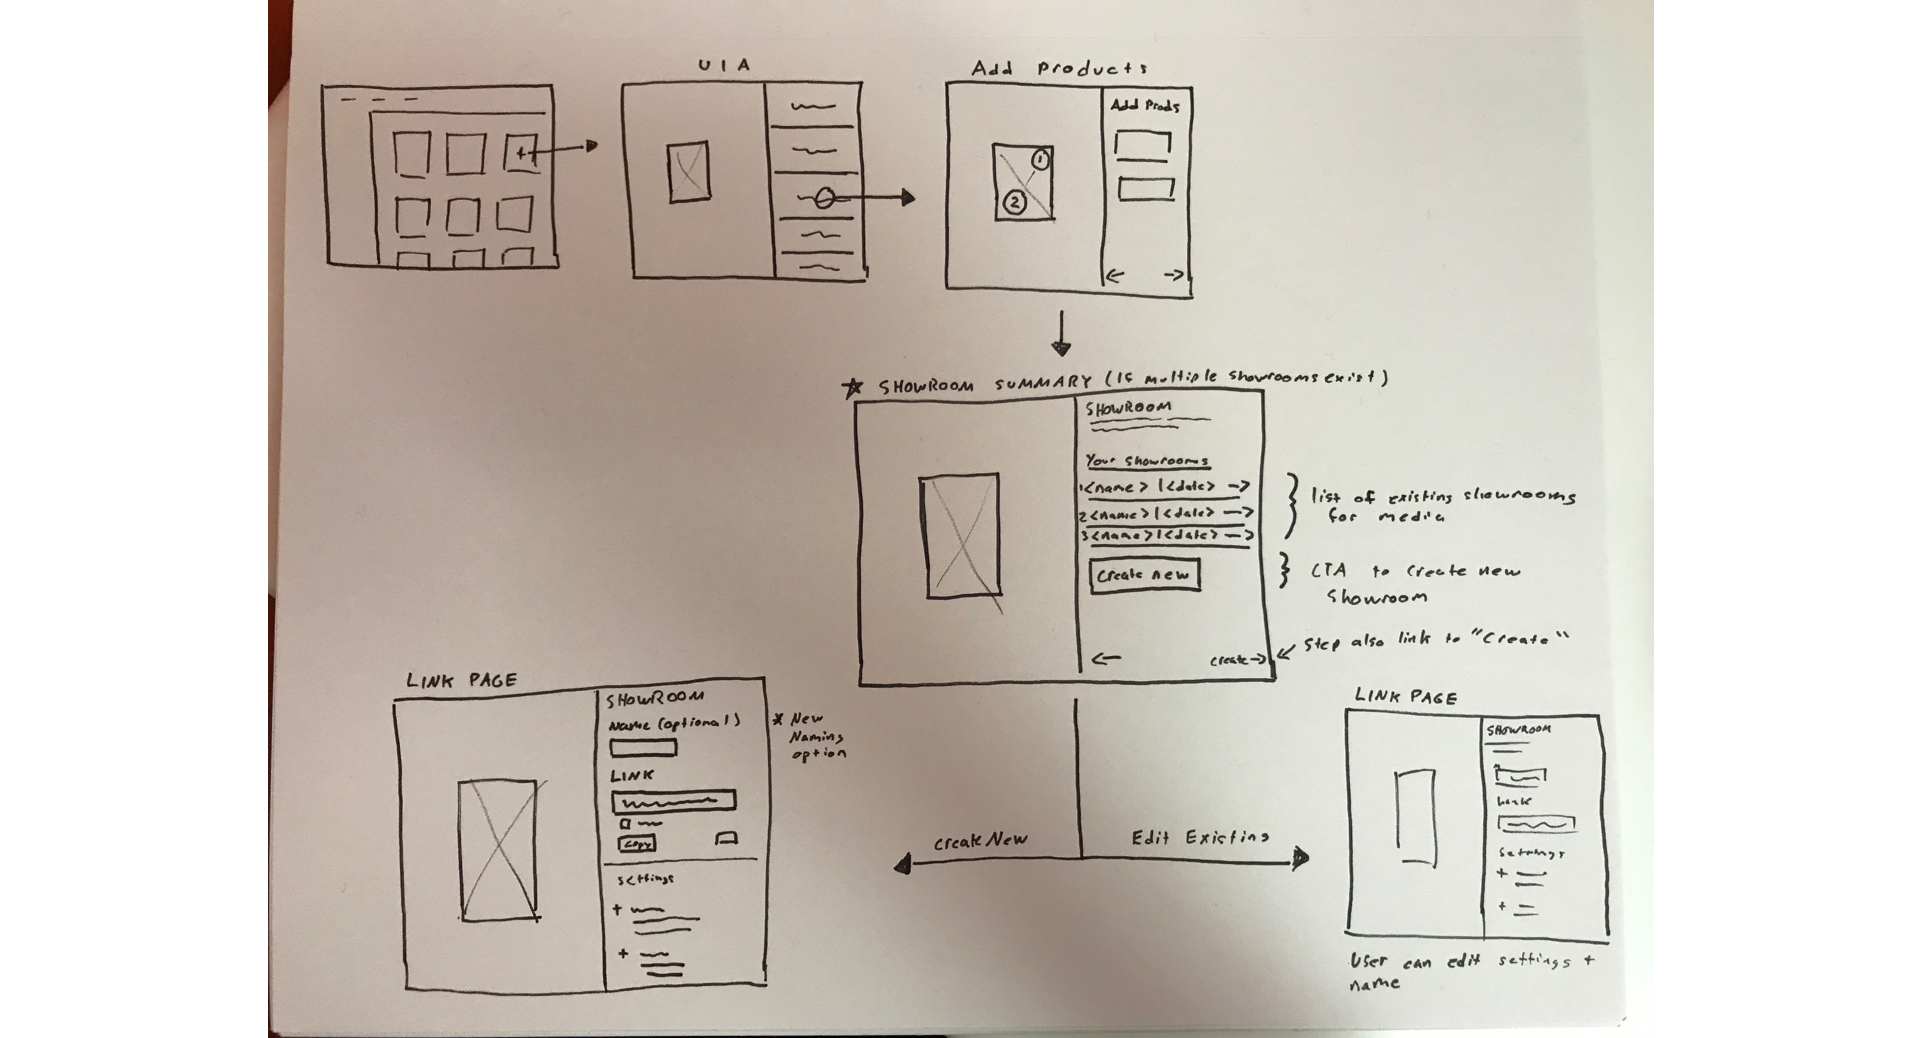 UIA
Add Products
+
Add Prods
1
2
← →
★ SHOWROOM SUMMARY (If multiple showrooms exist)
SHOWROOM
Your showrooms
1<name> | <date> →
2<name> | <date> →
3<name> | <date> →
list of existing showrooms
for media
Create new
CTA to create new
showroom
← create →
Step also link to "Create"
LINK PAGE
SHOWROOM
Name (optional)
* New
Naming
option
LINK
copy
settings
+
+
Create New
Edit Existing
LINK PAGE
SHOWROOM
Link
Settings
+
+
User can edit settings +
name